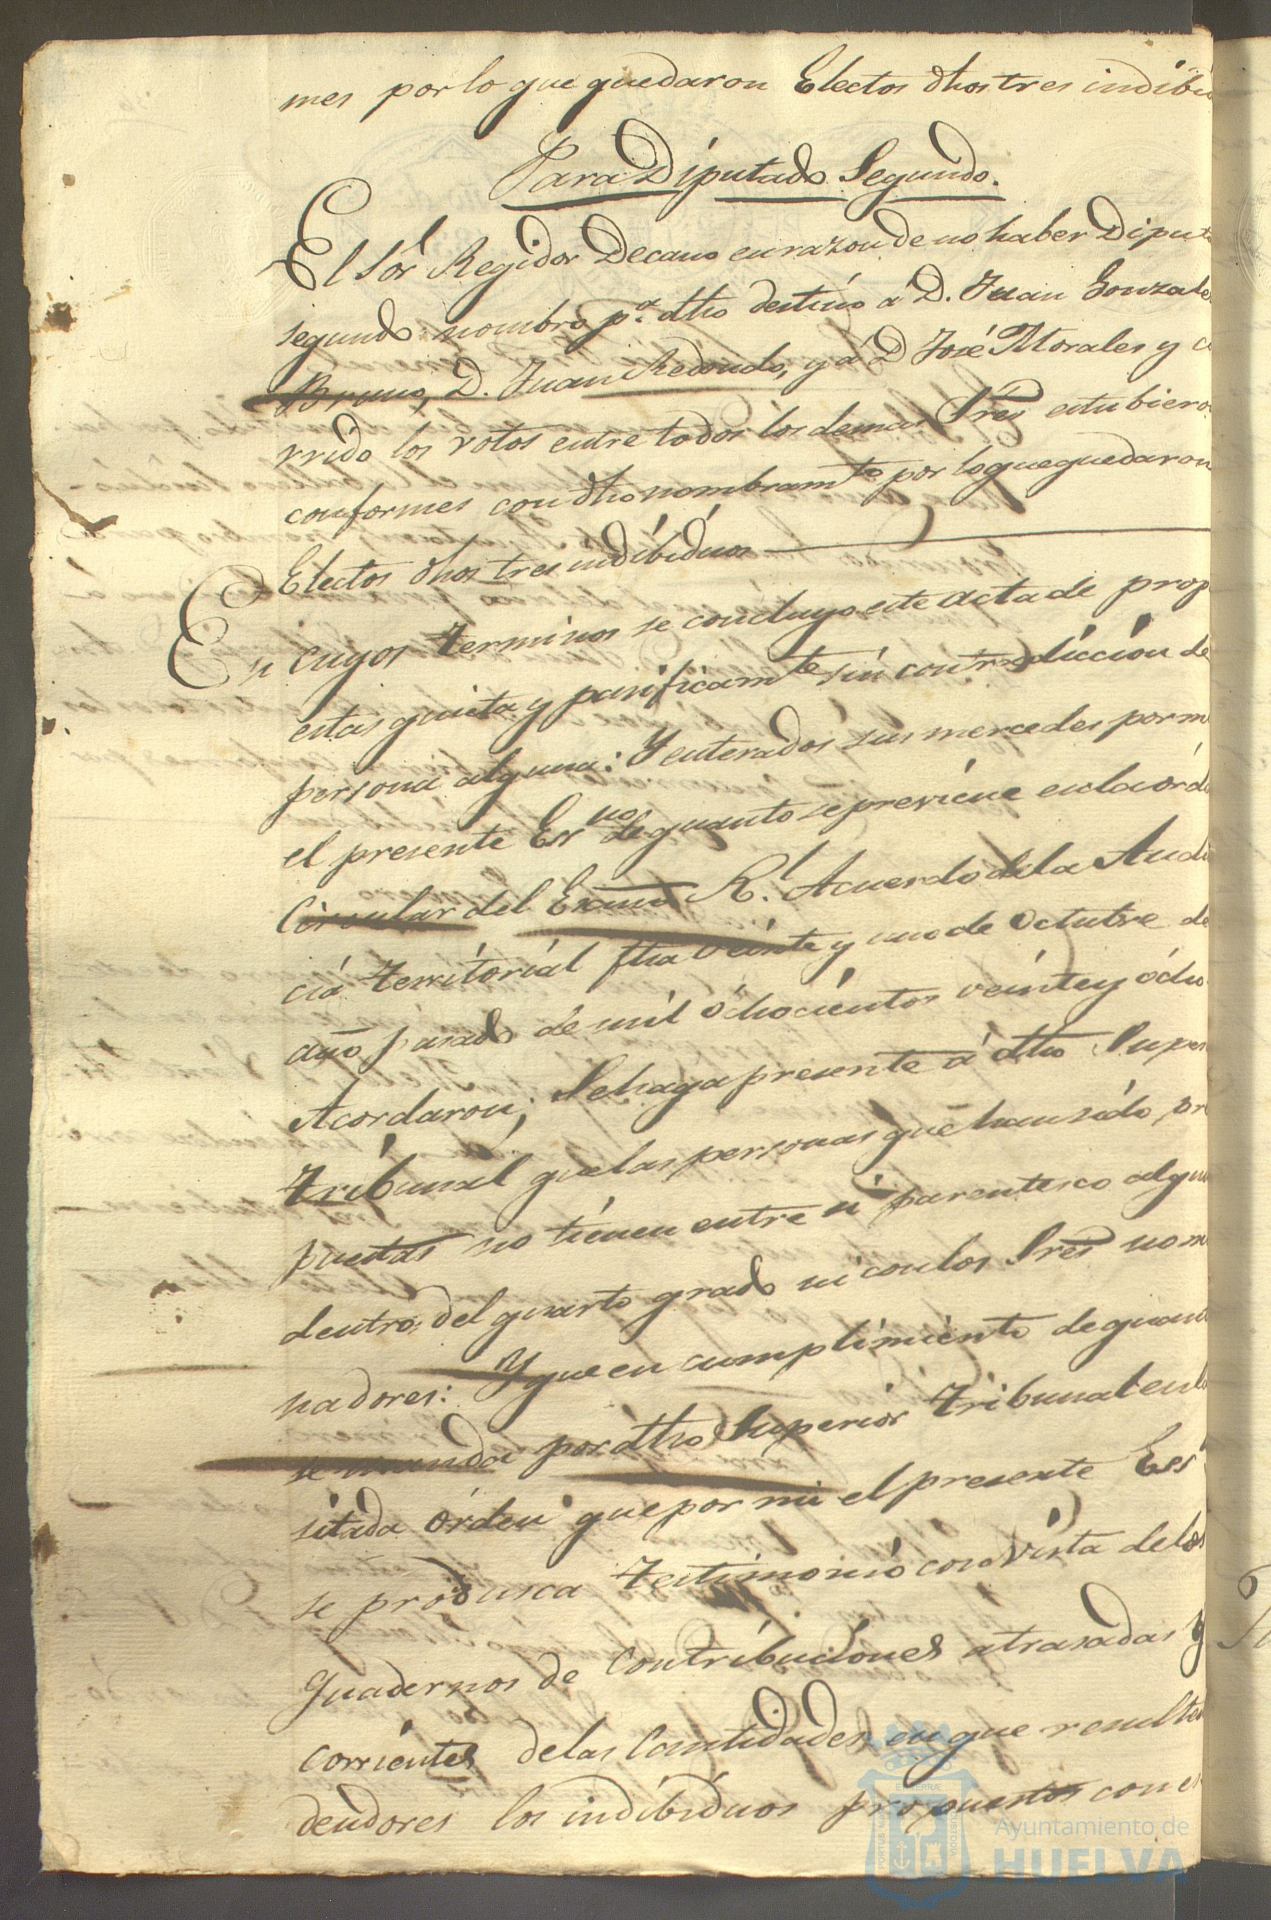 mes por lo que quedaron Electos dhos tres indibi
Para Diputado Segundo.
El Sor. Regidor Decano en razon de no haber Diput
segundo nombro pa. dho destino a D. Juan Gonzale
Bruno, D. Juan Redondo, y á D José Morales y c
rrido los votos entre todos los demas Sres estubiero
conformes con dho nombramto por lo que quedaron
Electos dhos tres indibiduos
En cuyos terminos se concluyo este acta de prop
estas quieta y pasificamte sin contradiccion de
persona alguna: Y enterados sus mercedes por m
el presente Esno de quanto se previene en la orde
Circular del Exmo Rl. Acuerdo de la Audi
cia territorial fha veinte y uno de Octubre de
año pasado de mil ochocientos veinte y ocho
Acordaron; Se haga presente á dho Super
tribunal que las personas que han sido pro
puestas no tienen entre si parentesco algu
dentro del quarto grado ni con los Sres nom
nadores: Y que en cumplimiento de quant
se manda por dho Superior tribunal en la
sitada órden que por mi el presente Es
se produsca testimonio con vista de los
quadernos de contribuciones atrasadas y
corrientes de las Cantidades en que resulte
deudores los indibiduos propuestos con e
Ayuntamiento de
HUELVA